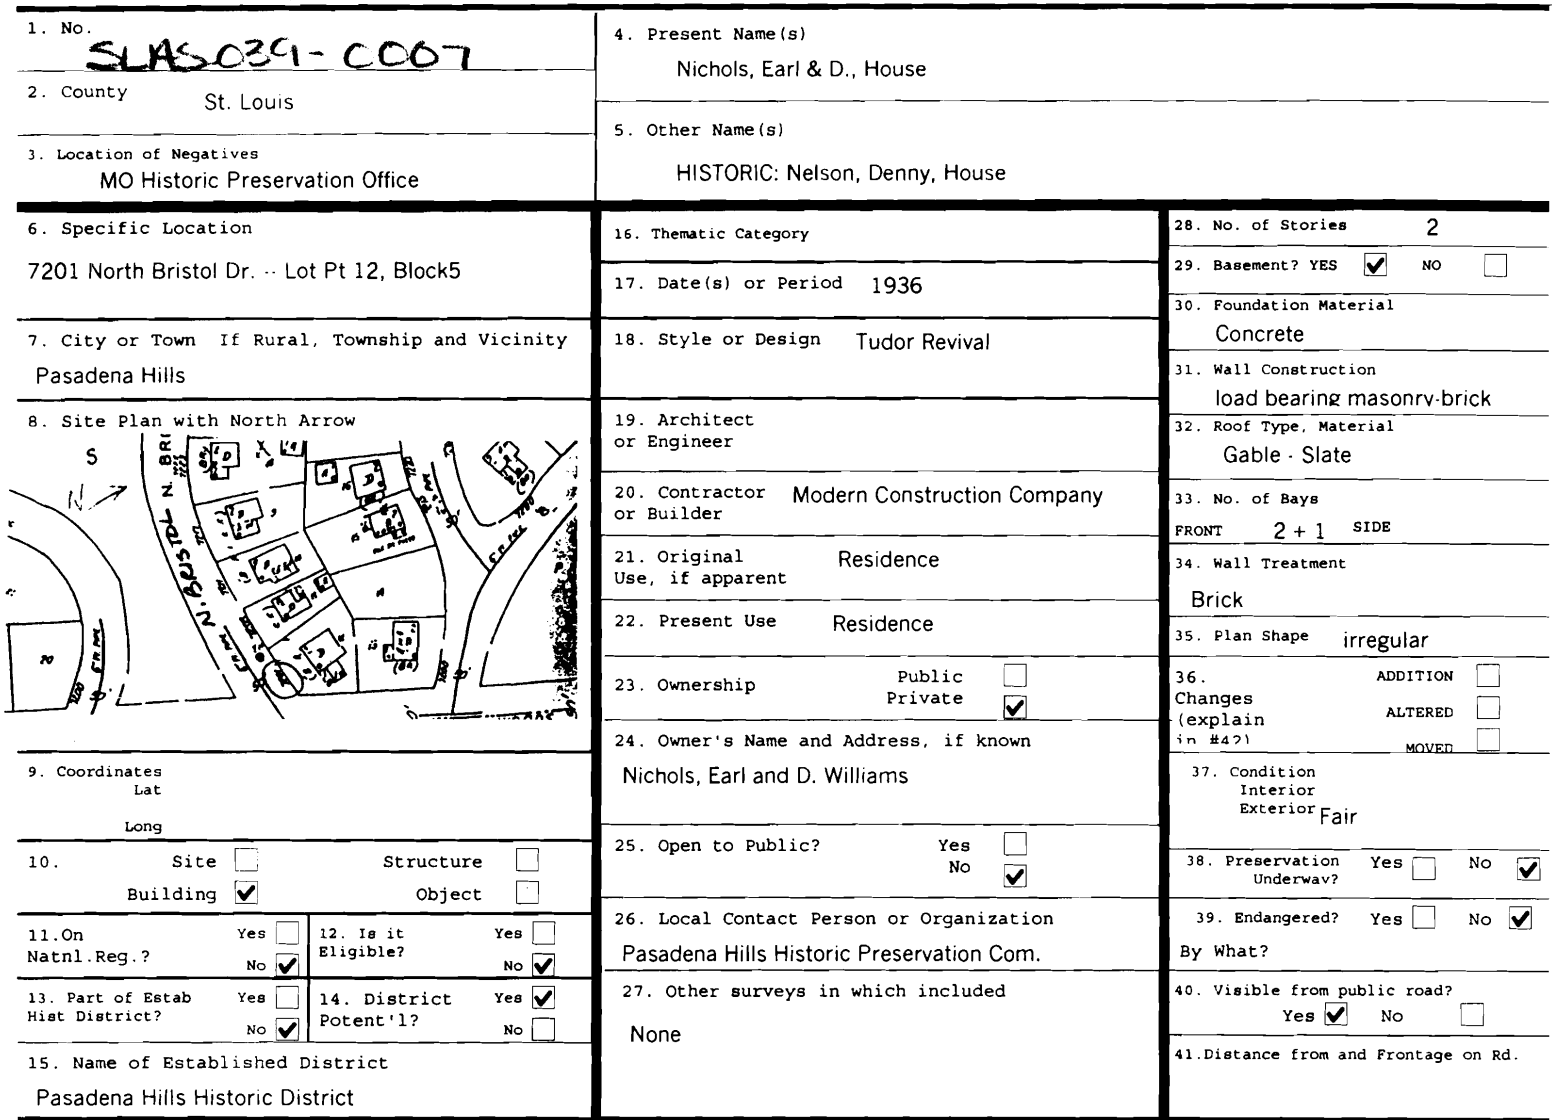 1. No.
SLAS039-C007
2. County St. Louis
3. Location of Negatives
MO Historic Preservation Office
4. Present Name(s)
Nichols, Earl & D., House
5. Other Name(s)
HISTORIC: Nelson, Denny, House
6. Specific Location
7201 North Bristol Dr. -- Lot Pt 12, Block5
7. City or Town If Rural, Township and Vicinity
Pasadena Hills
8. Site Plan with North Arrow
S
N
N. BRI
N. BRISTOL
9. Coordinates
Lat
Long
10. Site Structure
Building ✔ Object
11.On Yes
Natnl.Reg.? No ✔
12. Is it Yes
Eligible? No ✔
13. Part of Estab Yes
Hist District? No ✔
14. District Yes ✔
Potent'l? No
15. Name of Established District
Pasadena Hills Historic District
16. Thematic Category
17. Date(s) or Period 1936
18. Style or Design Tudor Revival
19. Architect
or Engineer
20. Contractor Modern Construction Company
or Builder
21. Original Residence
Use, if apparent
22. Present Use Residence
23. Ownership Public
Private ✔
24. Owner's Name and Address, if known
Nichols, Earl and D. Williams
25. Open to Public? Yes
No ✔
26. Local Contact Person or Organization
Pasadena Hills Historic Preservation Com.
27. Other surveys in which included
None
28. No. of Stories 2
29. Basement? YES ✔ NO
30. Foundation Material
Concrete
31. Wall Construction
load bearing masonry-brick
32. Roof Type, Material
Gable - Slate
33. No. of Bays
FRONT 2 + 1 SIDE
34. Wall Treatment
Brick
35. Plan Shape irregular
36. ADDITION
Changes
(explain ALTERED
in #42)
MOVED
37. Condition
Interior
Exterior Fair
38. Preservation Yes No ✔
Underway?
39. Endangered? Yes No ✔
By What?
40. Visible from public road?
Yes ✔ No
41.Distance from and Frontage on Rd.